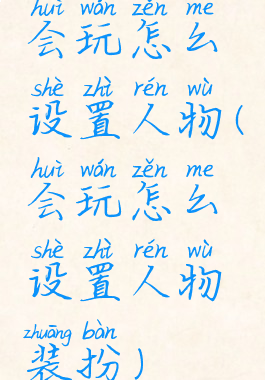 huì wán zěn me
会玩怎么
shè zhì rén wù
设置人物(
huì wán zěn me
会玩怎么
shè zhì rén wù
设置人物
zhuāng bàn
装扮)